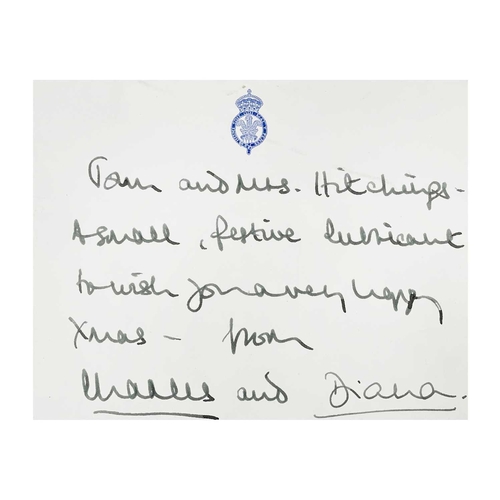 Tom and Mrs. Hitchings -
A small, festive lubricant
to wish you a very happy
Xmas - from
Charles and Diana.